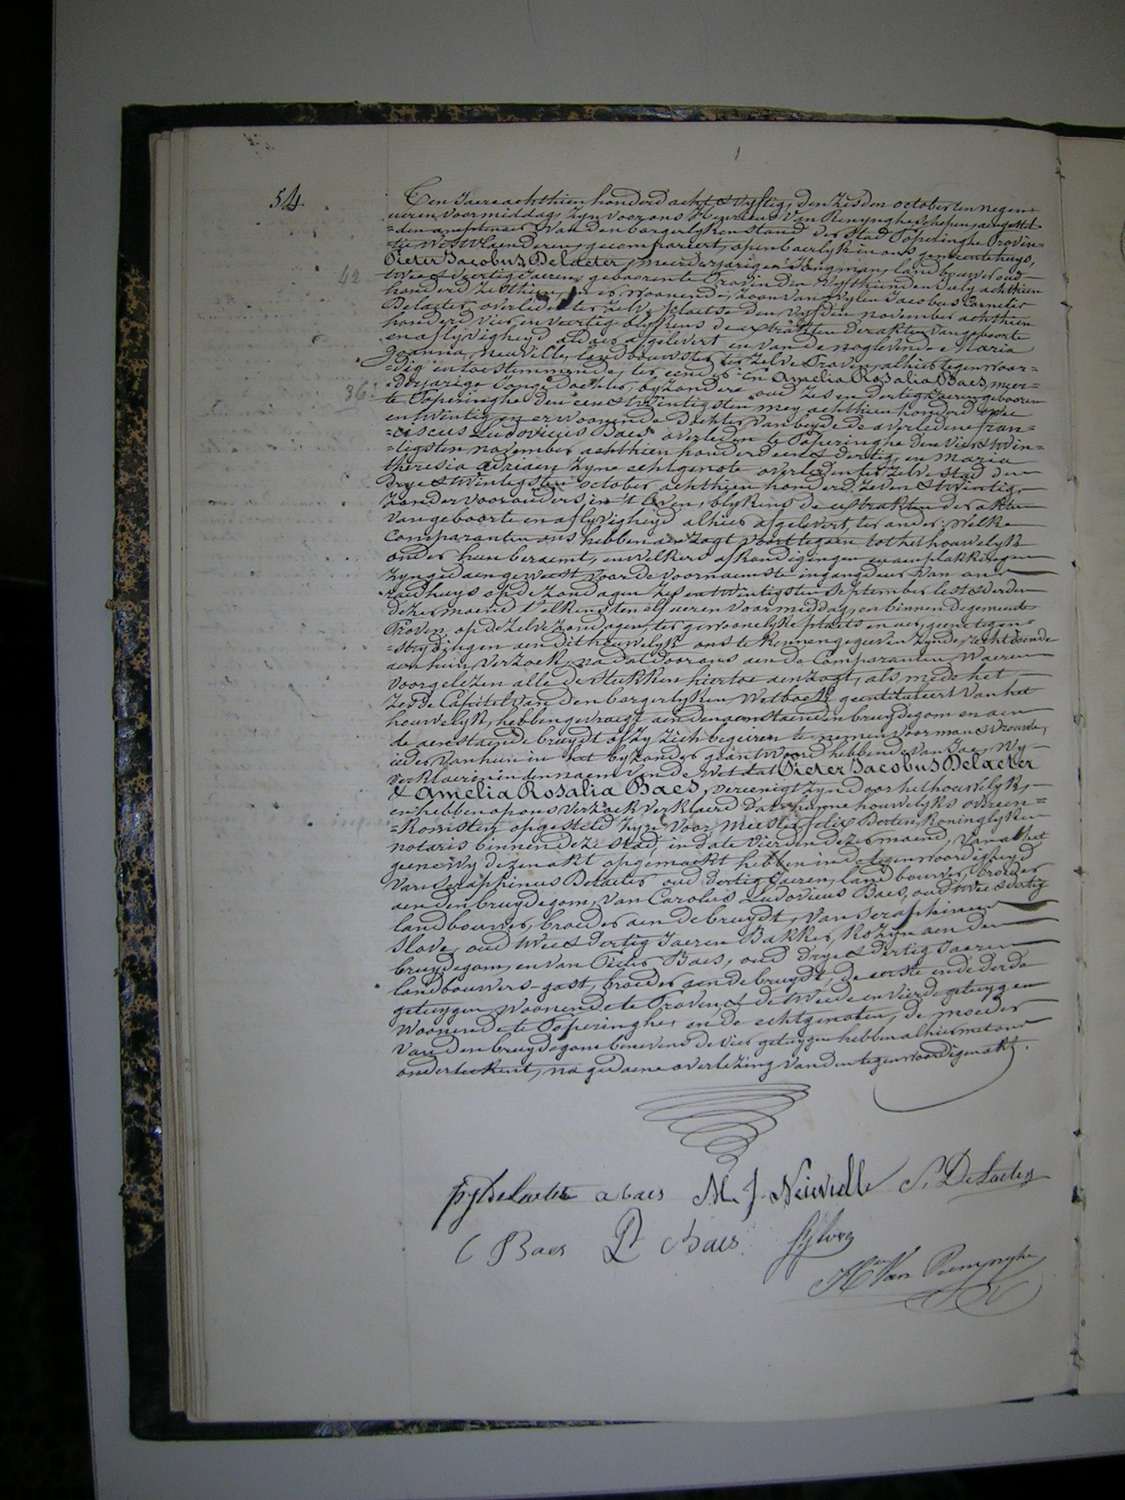 54
Ten Jaere achthien honderd acht & vyftig, den zesden october ten negen
ueren voormiddag, zyn voor ons Henricus Van Renynghe schepen, aengestel-
=den van den borgerlyken stand der Stad Poperinghe Provin-
=tie WestVlaenderen, gecompareert, openbaerlyk in ons gemeentehuys,
Pieter Jacobus Delaeter, meerderjarigen Jongman, landbouwer oud
42
twee & viertig Jaeren, geboren te Proven den vyfthienden July achthien
honderd zesthien, en er woonende, zoon van wylen Jacobus Cornelis
Delaeter overleden ter zelve plaetse den vyfden november achthien
honderd vier en veertig blykens de extrakten der akten van geboorte
en aflyvigheyd alhier afgelevert, en van de noglevende Maria
Joanna Neuville, landbouwster ter zelve Proven, alhier tegenwoor-
=dig en toestemmende, ter eender; En Amelia Rosalia Baes, meer-
36
=derjarige Jonge dochter, byzondere oud zes en dertig Jaeren geboren
te Poperinghe den een & twintigsten mey achthien honderd twee
en twintig, en er woonende Dochter van beyde de overledene Fran-
=ciscus Ludovicus Baes overleden te Poperinghe den vier & twin-
=tigsten november achthien honderd een & dertig, en Maria
theresia Adriaen zyne echtgenote overleden ter zelve stad den
drye & twintigsten october achthien honderd zeven & twintig,
zonder voorouders in 't leven, blykens de extrakten der akten
van geboorte en aflyvigheyd alhier afgelevert, ter ander; Welke
Comparanten ons hebben aenzogt voorttegaen tot het houwelyk
onder hun beraemt, en welkers afkondigingen en aenplakkingen
zyn gedaen geweest voor de voornaemste ingangdeur van ons
raedhuys op de zondagen zes en twintigsten September lest & derden
dezer maend telkens ten elf ueren voormiddag, en binnen de gemeente
Proven op de zelve zondagen, ter gewoonelyke plaets en uer, geene tegen-
=strydingen aen dit houwelyk ons te kennen gegeven zynde, recht doende
aen hun verzoek, na dat door ons aen de Comparanten waeren
voorgelezen alle de stukken hiertoe aenzogt, als mede het
Zesde Capitel van den borgerlyken Wetboek geintituleert van het
houwelyk, hebben gevraegt aen den aenstaenden bruydegom en aen
de aenstaende bruydt of zy zich begeeren te nemen voor man & vrouwe,
ieder van hun in het byzonder geantwoord hebbende van Jae, Wy
verklaeren in den naem van de Wet dat Pieter Jacobus Delaeter
& Amelia Rosalia Baes, vereenigt zyn door het houwelyk,
en hebben op ons verzoek verklaerd dat hunne houwelyks overeen-
=komsten opgesteld zyn voor Meester Felix Berten, Koninglyken
notaris binnen deze stad, in date vierden dezer maend, Van al het
geene wy dezen akt opgemaekt hebben in de tegenwoordigheyd
van Seraphinus Delaeter oud dertig Jaeren, landbouwer, broeder
aen den bruydegom, van Carolus Ludovicus Baes, oud twee & dertig
landbouwer, broeder aen de bruydt, van Seraphinus
Slove, oud twee & dertig Jaeren Bakker, Kozyn aen den
bruydegom, en van Pieter Baes, oud drye & dertig Jaeren
landbouwers-gast, broeder aen de bruydt, de eerste en de derde
getuygen woonende te Proven, & de tweede en vierde getuygen
woonende te Poperinghe, en de echtgenoten, de moeder
van den bruydegom benevens de vier getuygen hebben alhier met ons
onderteekent, na gedaene overlezing van den tegenwoordigen akt.
pj delaeter a baes M. J. Neuville S. De Laeter
C Baes Pr Baes
Hri Van Renynghe